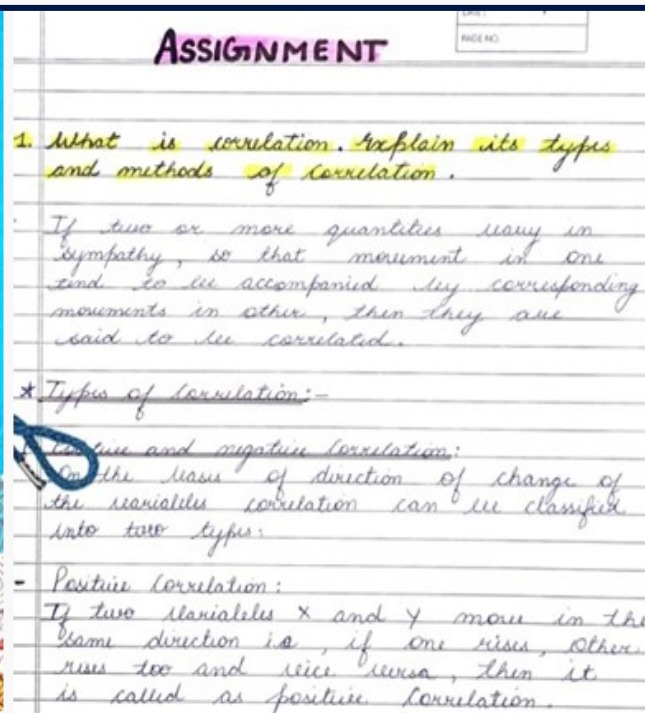 DATE:
PAGE NO.
ASSIGNMENT
1. What is correlation. Explain its types
and methods of correlation.
If two or more quantities vary in
sympathy, so that movement in one
tend to be accompanied by corresponding
movements in other, then they are
said to be correlated.
* Types of Correlation:-
and negative Correlation:
On the basis of direction of change of
the variables correlation can be classified
into two types:
- Positive Correlation:
If two variables X and Y move in the
same direction i.e, if one rises, other
rises too and vice versa, then it
is called as positive Correlation.